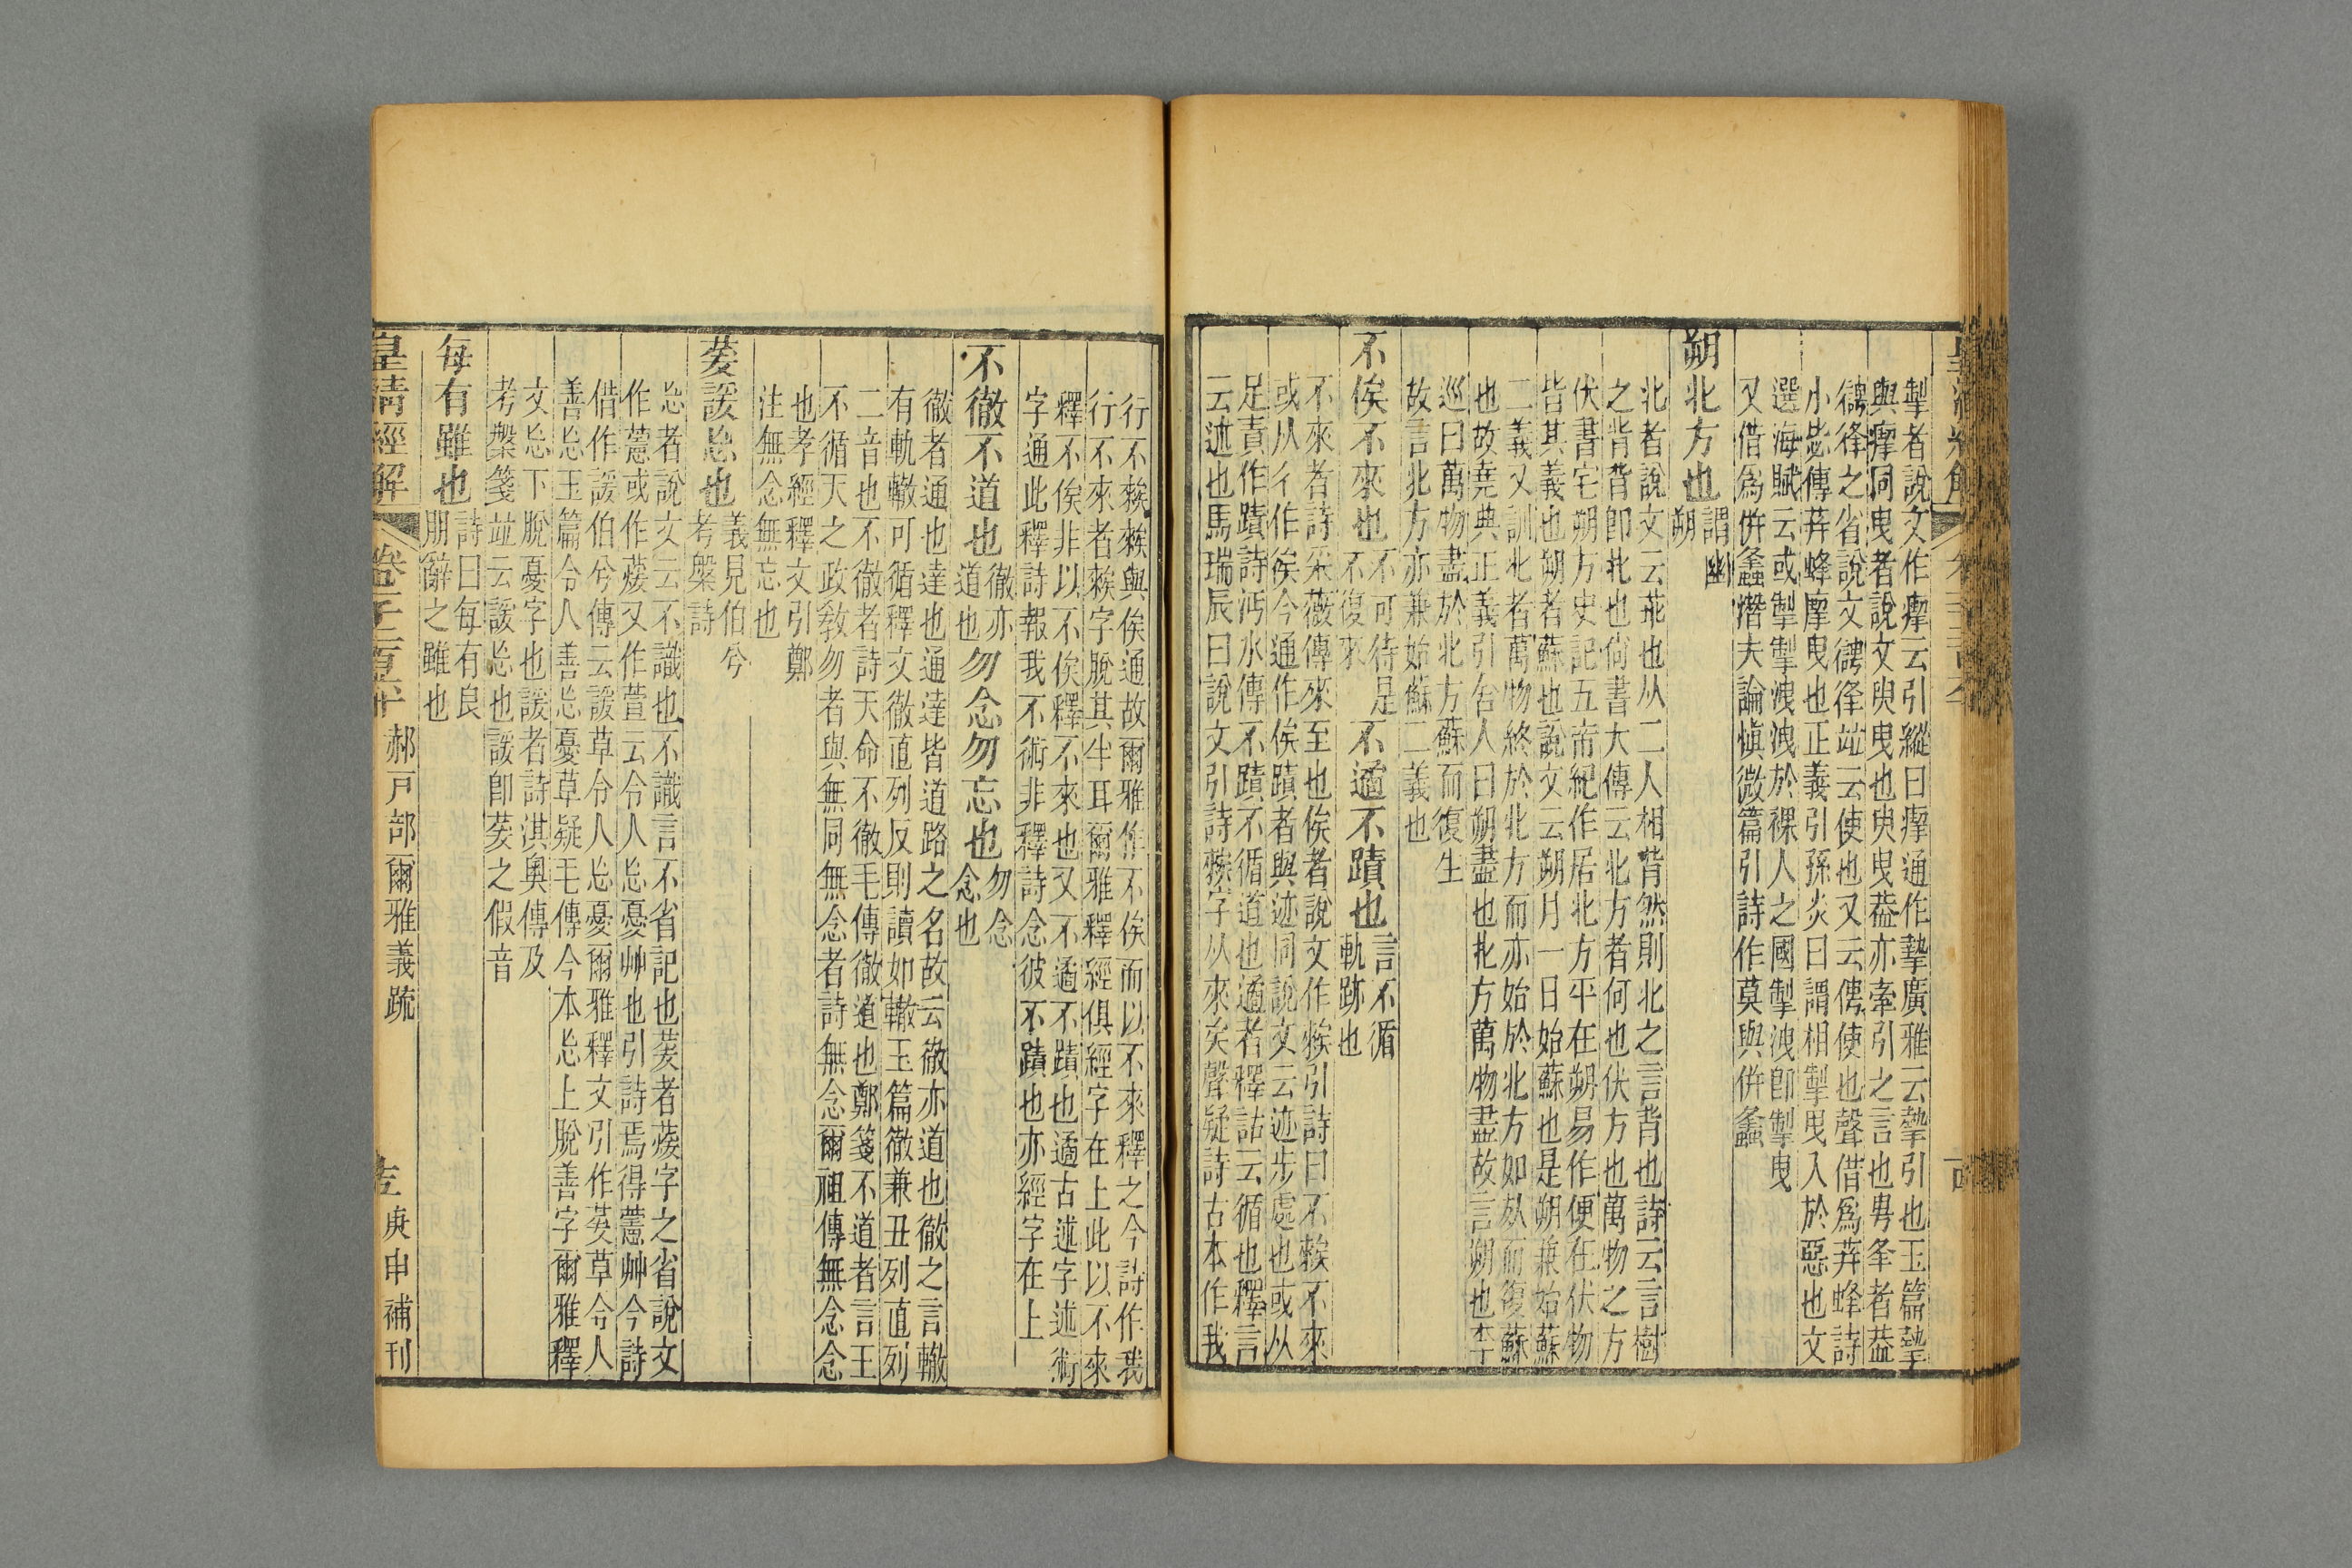 掣者說文作瘳云引縱曰瘳通作摯廣雅云摯引也玉篇摯
與瘳同曳者說文臾曳也臾曳葢亦牽引之言也甹夆者葢
德夆之省說文德夆竝云使也又云俜使也聲借爲荓蜂詩
小毖傳荓蜂摩曳也正義引孫炎曰謂相掣曳入於惡也文
選海賦云或掣掣洩洩於裸人之國掣洩卽掣曳
又借爲倂螽潛夫論愼微篇引詩作莫與倂螽
朔北方也
謂幽
朔
北者說文云乖也从二人相背然則北之言背也詩云言樹
之背背卽北也尙書大傳云北方者何也伏方也萬物之方
伏書宅朔方史記五帝紀作居北方平在朔易作便在伏物
皆其義也朔者蘇也說文云朔月一日始蘇也是朔兼始蘇
二義又訓北者萬物終於北方而亦始於北方如㱙而復蘇
也故堯典正義引舍人曰朔盡也北方萬物盡故言朔也李
巡曰萬物盡於北方蘇而復生
故言北方亦兼始蘇二義也
不俟不來也
不可待是
不復來
不遹不蹟也
言不循
軌跡也
不來者詩采薇傳來至也俟者說文作𥏳引詩曰不𥏳不來
或从彳作俟今通作俟蹟者與迹同說文云迹步處也或从
足責作蹟詩沔水傳不蹟不循道也遹者釋詁云循也釋言
云述也馬瑞辰曰說文引詩𥏳字从來矣聲疑詩古本作我
行不𥏳𥏳與俟通故爾雅作不俟而以不來釋之今詩作我
行不來者𥏳字脫其半耳爾雅釋經俱經字在上此以不來
釋不俟非以不俟釋不來也又不遹不蹟也遹古述字述術
字通此釋詩報我不術非釋詩念彼不蹟也亦經字在上
不徹不道也
徹亦
道也
勿念勿忘也
勿念
念也
徹者通也達也通達皆道路之名故云徹亦道也徹之言轍
有軌轍可循釋文徹直列反則讀如轍玉篇徹兼丑列直列
二音也不徹者詩天命不徹毛傳徹道也鄭箋不道者言王
不循天之政敎勿者與無同無念者詩無念爾祖傳無念念
也孝經釋文引鄭
注無念無忘也
萲諼忘也
義見伯兮
考槃詩
忘者說文云不識也不識言不省記也萲者藼字之省說文
作藼或作蕿又作萱云令人忘憂艸也引詩焉得藼艸今詩
借作諼伯兮傳云諼草令人忘憂爾雅釋文引作萲草令人
善忘玉篇令人善忘憂草疑毛傳今本忘上脫善字爾雅釋
文忘下脫憂字也諼者詩淇奥傳及
考槃箋竝云諼忘也諼卽萲之假音
每有雖也
詩曰每有良
朋辭之雖也
皇淸經解
郝戸部爾雅義疏
庚申補刊